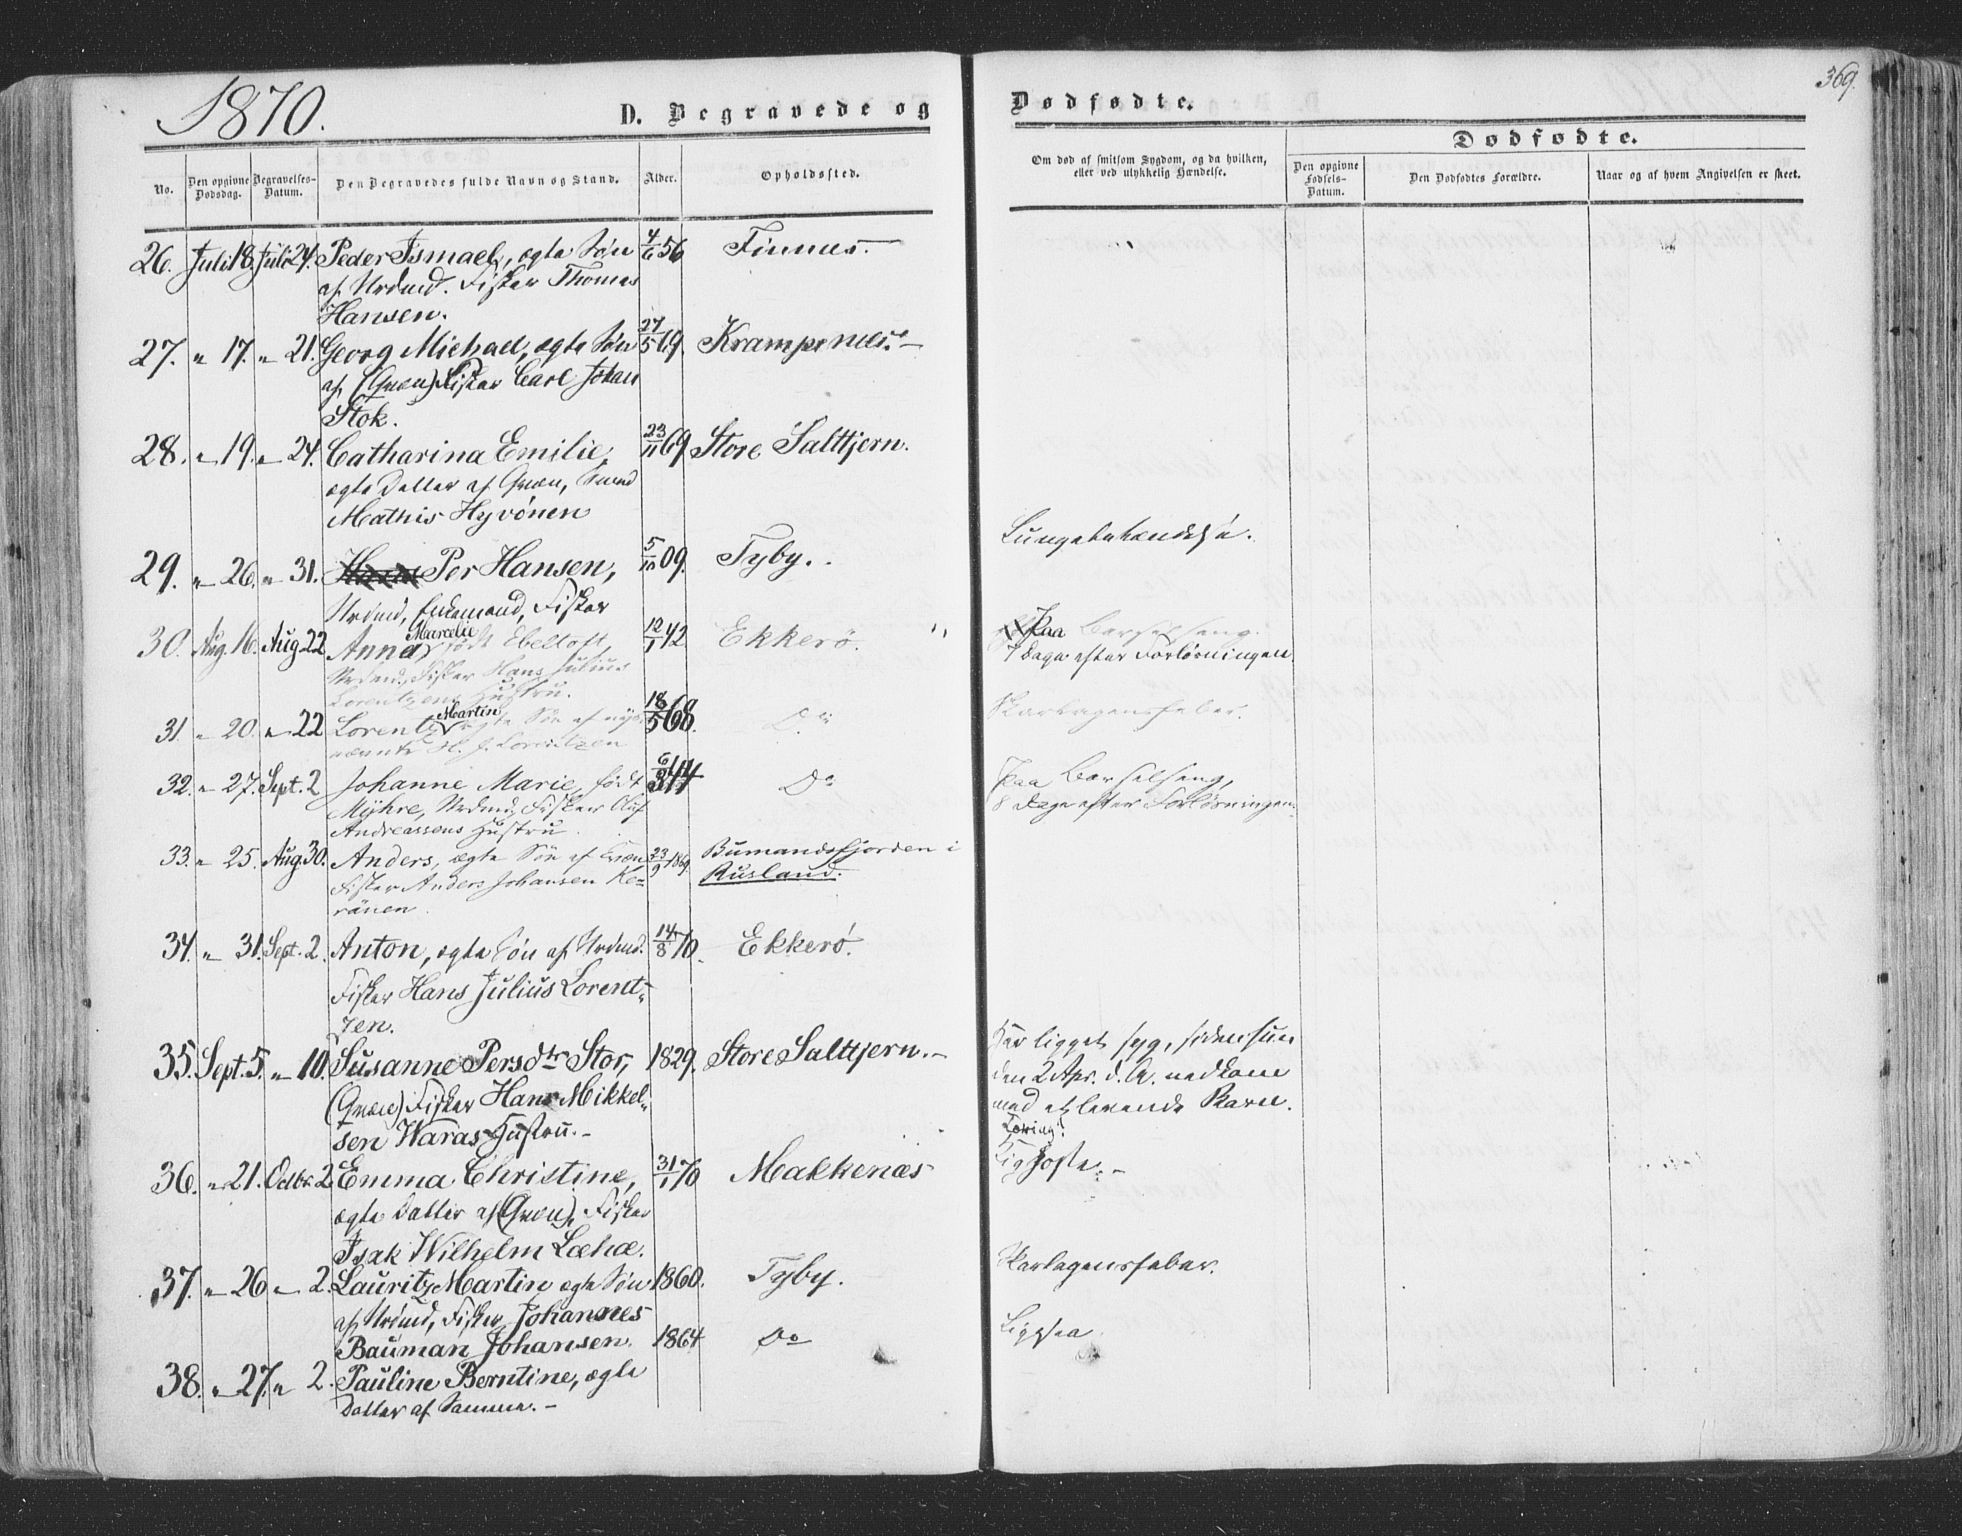 1870.
D. Begravede og
Dødfødte.
369.
No.
Den opgivne Dødsdag.
Begravelses-Datum.
Den Begravedes fulde Navn og Stand.
Alder.
Opholdssted.
Om død af smitsom Sygdom, og da hvilken,
eller ved ulykkelig Hændelse.
Dødfødte.
Den opgivne Fødsels-Datum.
Den Dødfødtes Forældre.
Naar og af hvem Angivelsen er skeet.
26. Juli 18. Juli 24. Peder Ismael, ægte Søn 4/6 56 Finnes.
af Nrdmd. Fisker Thomas
Hansen.
27. " 17. " 21. Georg Michael, ægte Søn 27/5 69 Krampenæs.
af (Qvæn) Fisker Carl Johan
Stok.
28. " 19. " 24. Catharina Emilie, 23/11 69 Store Saltjern.
ægte Datter af Qvæn, Smed
Mathis Hyvönen
29. " 26. " 31. Per Hansen, 5/10 09. Tyby. Lungebetændelse.
Nrdmd, Enkemand, Fisker
30. Aug. 16. Aug 22 Anna Marcelie født Ebeltoft, 12/1 42 Ekkerö. Paa Barselseng.
Nrdmd. Fisker Hans Julius 7 Dage efter Forløsningen.
Lorentzens Hustru.
31. " 20. " 22 Lorentz Martin ægte Søn af nys- 18/5 68. Do Skarlagensfeber.
nævnte H. J. Lorentzen
32. " 27. Sept. 2 Johanne Marie, født 6/3 44 Do Paa Barselseng,
Myhre, Nrdmd, Fisker Oluf 8 Dage efter Forløsningen.
Andreassens Hustru.
33. " 25. Aug. 30. Anders, ægte Søn af Qvæn 23/9 1869. Bumandsfjorden i
Fisker Anders Johansen Ke- Rusland.
ränen.
34. " 31. Sept. 2. Anton, ægte Søn af Nrdmd. 14/8 70. Ekkerö.
Fisker Hans Julius Lorent-
zen.
35. Sept. 5. " 10. Susanne Persdtr Stor, 1829. Store Saltjern. Har ligget syg, siden hun
(Qvæn) Fisker Hans Mikkel- den 2 Apr. d. A. nedkom
sen Waras Hustru. med et levende Barn.
36. " 21. Octbr. 2 Emma Christine, 31/1 70 Makkenæs Kighoste.
ægte Datter af (Qvæn), Fisker
Isak Wilhelm Læhæ.
37. " 26 " 2. Lauritz Martin ægte Søn 1860. Tyby. Skarlagensfeber.
af Nrdmd, Fisker Johannes
Bauman Johansen. 1864 Do Ligesaa
38. " 27. " 2. Pauline Berntine, ægte
Datter af Samme.